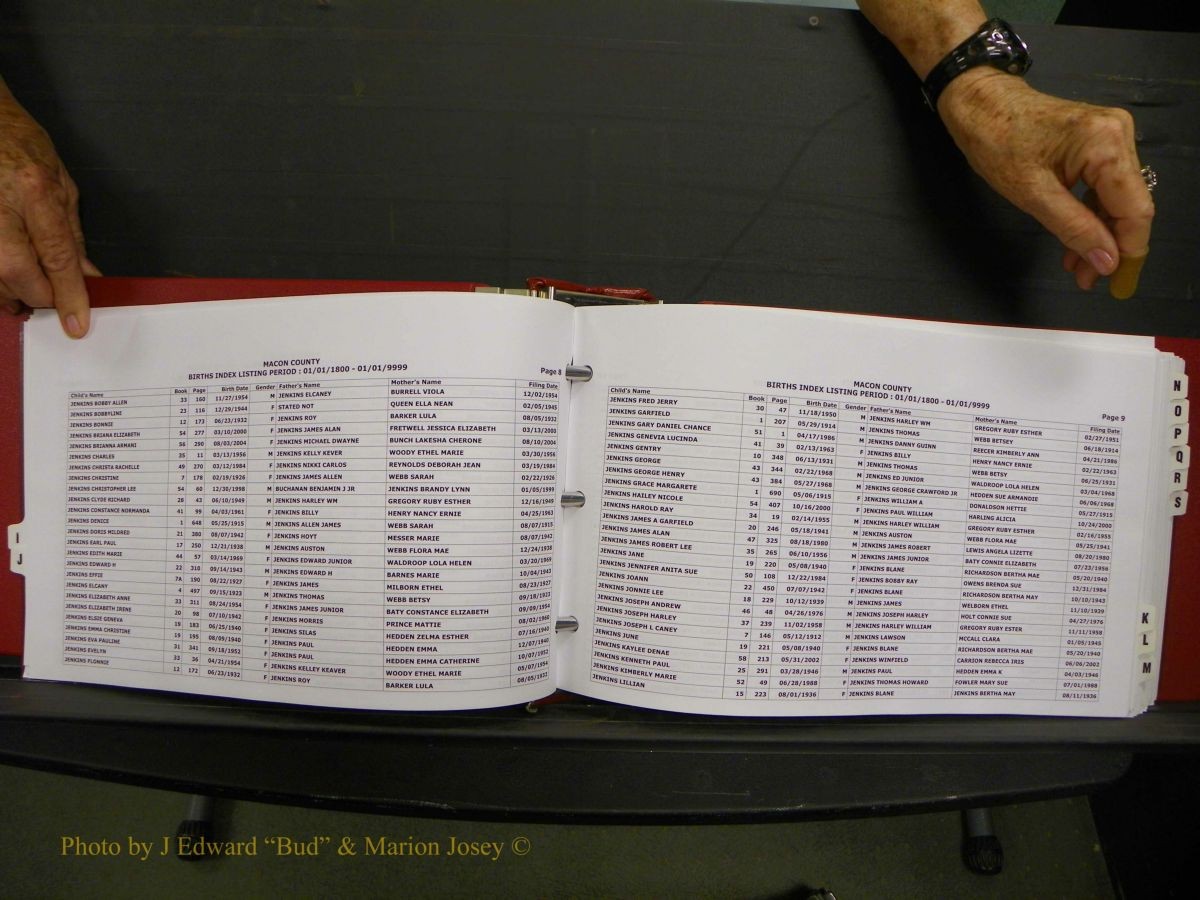 MACON COUNTY
BIRTHS INDEX LISTING PERIOD : 01/01/1800 - 01/01/9999
Page 8
Child's Name Book Page Birth Date Gender Father's Name Mother's Name Filing Date
JENKINS BOBBY ALLEN 33 160 11/27/1954 M JENKINS ELCANEY BURRELL VIOLA 12/02/1954
JENKINS BOBBYLINE 23 116 12/29/1944 F STATED NOT QUEEN ELLA NEAN 02/05/1945
JENKINS BONNIE 12 173 06/23/1932 F JENKINS ROY BARKER LULA 08/05/1932
JENKINS BRIANA ELIZABETH 54 277 03/10/2000 F JENKINS JAMES ALAN FRETWELL JESSICA ELIZABETH 03/13/2000
JENKINS BRIANNA ARMANI 56 290 08/03/2004 F JENKINS MICHAEL DWAYNE BUNCH LAKESHA CHERONE 08/10/2004
JENKINS CHARLES 35 11 03/13/1956 M JENKINS KELLY KEVER WOODY ETHEL MARIE 03/30/1956
JENKINS CHRISTA RACHELLE 49 270 03/12/1984 F JENKINS NIKKI CARLOS REYNOLDS DEBORAH JEAN 03/19/1984
JENKINS CHRISTINE 7 178 02/19/1926 F JENKINS JAMES ALLEN WEBB SARAH 02/22/1926
JENKINS CHRISTOPHER LEE 54 60 12/30/1998 M BUCHANAN BENJAMIN J JR JENKINS BRANDY LYNN 01/05/1999
JENKINS CLYDE RICHARD 28 43 06/10/1949 M JENKINS HARLEY WM GREGORY RUBY ESTHER 12/16/1949
JENKINS CONSTANCE NORMANDA 41 99 04/03/1961 F JENKINS BILLY HENRY NANCY ERNIE 04/25/1963
JENKINS DENICE 1 648 05/25/1915 M JENKINS ALLEN JAMES WEBB SARAH 08/07/1915
JENKINS DORIS MILDRED 21 380 08/07/1942 F JENKINS HOYT MESSER MARIE 08/07/1942
JENKINS EARL PAUL 17 250 12/21/1938 M JENKINS AUSTON WEBB FLORA MAE 12/24/1938
JENKINS EDITH MARIE 44 57 03/14/1969 F JENKINS EDWARD JUNIOR WALDROOP LOLA HELEN 03/20/1969
JENKINS EDWARD H 22 310 09/14/1943 M JENKINS EDWARD H BARNES MARIE 10/04/1943
JENKINS EFFIE 7A 190 08/22/1927 F JENKINS JAMES MILBORN ETHEL 08/23/1927
JENKINS ELCANY 4 497 09/15/1923 M JENKINS THOMAS WEBB BETSY 09/18/1923
JENKINS ELIZABETH ANNE 33 311 08/24/1954 F JENKINS JAMES JUNIOR BATY CONSTANCE ELIZABETH 09/09/1954
JENKINS ELIZABETH IRENE 20 98 07/10/1942 F JENKINS MORRIS PRINCE MATTIE 08/02/1960
JENKINS ELSIE GENEVA 19 183 06/25/1940 F JENKINS SILAS HEDDEN ZELMA ESTHER 07/16/1940
JENKINS EMMA CHRISTINE 19 195 08/09/1940 F JENKINS PAUL HEDDEN EMMA 12/07/1940
JENKINS EVA PAULINE 31 341 09/18/1952 F JENKINS PAUL HEDDEN EMMA CATHERINE 10/07/1952
JENKINS EVELYN 33 36 04/21/1954 F JENKINS KELLEY KEAVER WOODY ETHEL MARIE 05/07/1954
JENKINS FLONNIE 12 172 06/23/1932 F JENKINS ROY BARKER LULA 08/05/1932
I
J
MACON COUNTY
BIRTHS INDEX LISTING PERIOD : 01/01/1800 - 01/01/9999
Page 9
Child's Name Book Page Birth Date Gender Father's Name Mother's Name Filing Date
JENKINS FRED JERRY 30 47 11/18/1950 M JENKINS HARLEY WM GREGORY RUBY ESTHER 02/27/1951
JENKINS GARFIELD 1 207 05/29/1914 M JENKINS THOMAS WEBB BETSEY 06/18/1914
JENKINS GARY DANIEL CHANCE 51 1 04/17/1986 M JENKINS DANNY GUINN REECER KIMBERLY ANN 04/21/1986
JENKINS GENEVIA LUCINDA 41 39 02/13/1963 F JENKINS BILLY HENRY NANCY ERNIE 02/22/1963
JENKINS GENTRY 10 348 06/13/1931 M JENKINS THOMAS WEBB BETSY 06/25/1931
JENKINS GEORGE 43 344 02/22/1968 M JENKINS ED JUNIOR WALDROOP LOLA HELEN 03/04/1968
JENKINS GEORGE HENRY 43 384 05/27/1968 M JENKINS GEORGE CRAWFORD JR HEDDEN SUE ARMANDIE 06/06/1968
JENKINS GRACE MARGARETE 1 690 05/06/1915 F JENKINS WILLIAM A DONALDSON HETTIE 05/27/1915
JENKINS HAILEY NICOLE 54 407 10/16/2000 F JENKINS PAUL WILLIAM HARLING ALICIA 10/24/2000
JENKINS HAROLD RAY 34 19 02/14/1955 M JENKINS HARLEY WILLIAM GREGORY RUBY ESTHER 02/16/1955
JENKINS JAMES A GARFIELD 20 246 05/18/1941 M JENKINS AUSTON WEBB FLORA MAE 05/25/1941
JENKINS JAMES ALAN 47 325 08/18/1980 M JENKINS JAMES ROBERT LEWIS ANGELA LIZETTE 08/20/1980
JENKINS JAMES ROBERT LEE 35 265 06/10/1956 M JENKINS JAMES JUNIOR BATY CONNIE ELIZABETH 07/23/1956
JENKINS JANE 19 220 05/08/1940 F JENKINS BLANE RICHARDSON BERTHA MAE 05/20/1940
JENKINS JENNIFER ANITA SUE 50 108 12/22/1984 F JENKINS BOBBY RAY OWENS BRENDA SUE 12/31/1984
JENKINS JOANN 22 450 07/07/1942 F JENKINS BLANE RICHARDSON BERTHA MAY 10/10/1943
JENKINS JONNIE LEE 18 229 10/12/1939 M JENKINS JAMES WELBORN ETHEL 11/10/1939
JENKINS JOSEPH ANDREW 46 48 04/26/1976 M JENKINS JOSEPH HARLEY HOLT CONNIE SUE 04/27/1976
JENKINS JOSEPH HARLEY 37 239 11/02/1958 M JENKINS HARLEY WILLIAM GREGORY RUBY ESTER 11/11/1958
JENKINS JOSEPH L CANEY 7 146 05/12/1912 M JENKINS LAWSON MCCALL CLARA 01/05/1945
JENKINS JUNE 19 221 05/08/1940 F JENKINS BLANE RICHARDSON BERTHA MAE 05/20/1940
JENKINS KAYLEE DENAE 58 213 05/31/2002 F JENKINS WINFIELD CARRION REBECCA IRIS 06/06/2002
JENKINS KENNETH PAUL 25 291 03/28/1946 M JENKINS PAUL HEDDEN EMMA K 04/03/1946
JENKINS KIMBERLY MARIE 52 49 06/28/1988 F JENKINS THOMAS HOWARD FOWLER MARY SUE 07/01/1988
JENKINS LILLIAN 15 223 08/01/1936 F JENKINS BLANE JENKINS BERTHA MAY 08/11/1936
N
O
P
Q
R
S
K
L
M
Photo by J Edward “Bud” & Marion Josey ©